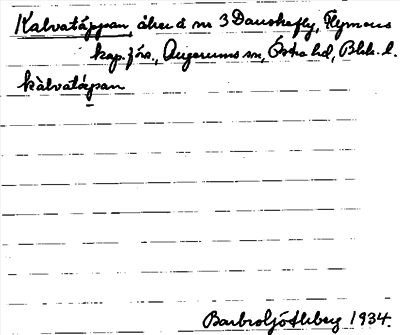 Kalvatäppan, åker å nr 3 Danskefly, Flymens
kap. förs., Augerums sn, Östra hd, Blek. l.
kàlvatápan
Barbro Götlberg 1934.